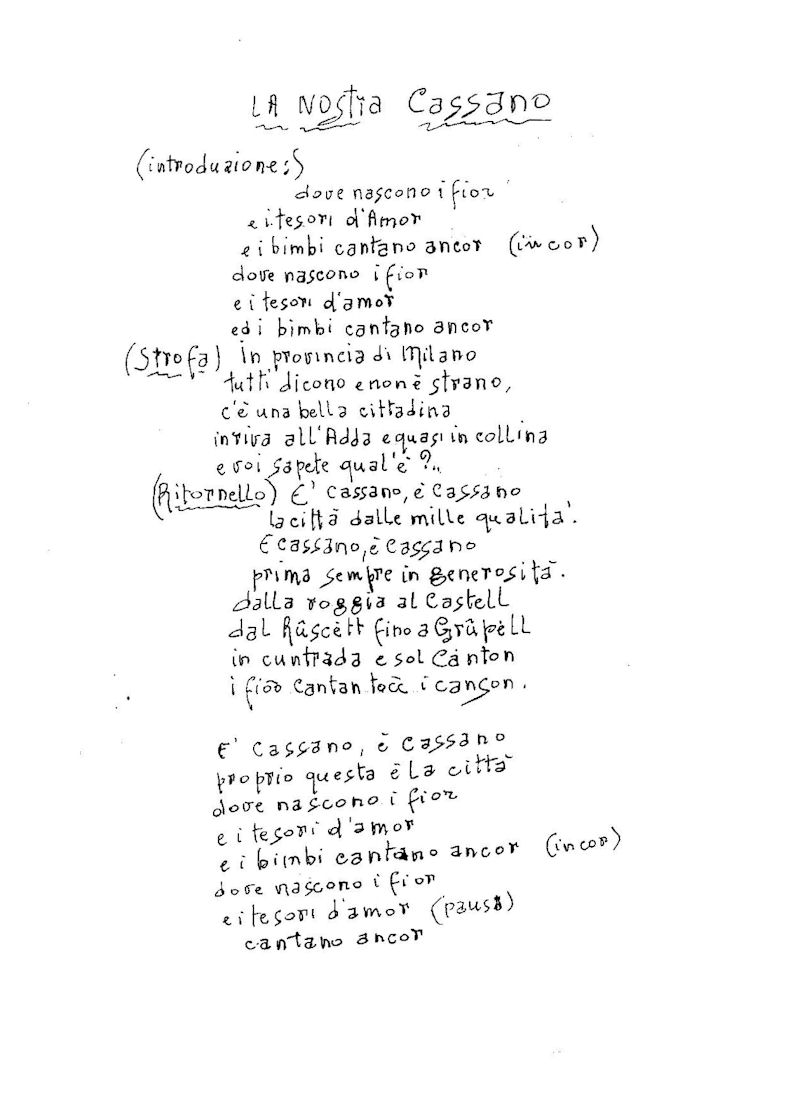 LA NOStra CaSSANO
(introduzione:)
dove nascono i fior
e i tesori d'Amor
e i bimbi cantano ancor (in cor)
dove nascono i fior
e i tesori d'amor
ed i bimbi cantano ancor
(Strofa) in provincia di Milano
tutti dicono e non è strano,
c'è una bella cittadina
in riva all'Adda e quasi in collina
e voi sapete qual'è?..
(Ritornello) E' Cassano, è Cassano
la città dalle mille qualità.
E Cassano, è Cassano
prima sempre in generosità.
dalla roggia al Castell
dal Rûscètt fino a Grûpèll
in cuntrada e sol Canton
i fioo cantan tocc i canson.
E' Cassano, è Cassano
proprio questa è la città
dove nascono i fior
e i tesori d'amor
e i bimbi cantano ancor (in cor)
dove nascono i fior
e i tesori d'amor (pausa)
cantano ancor